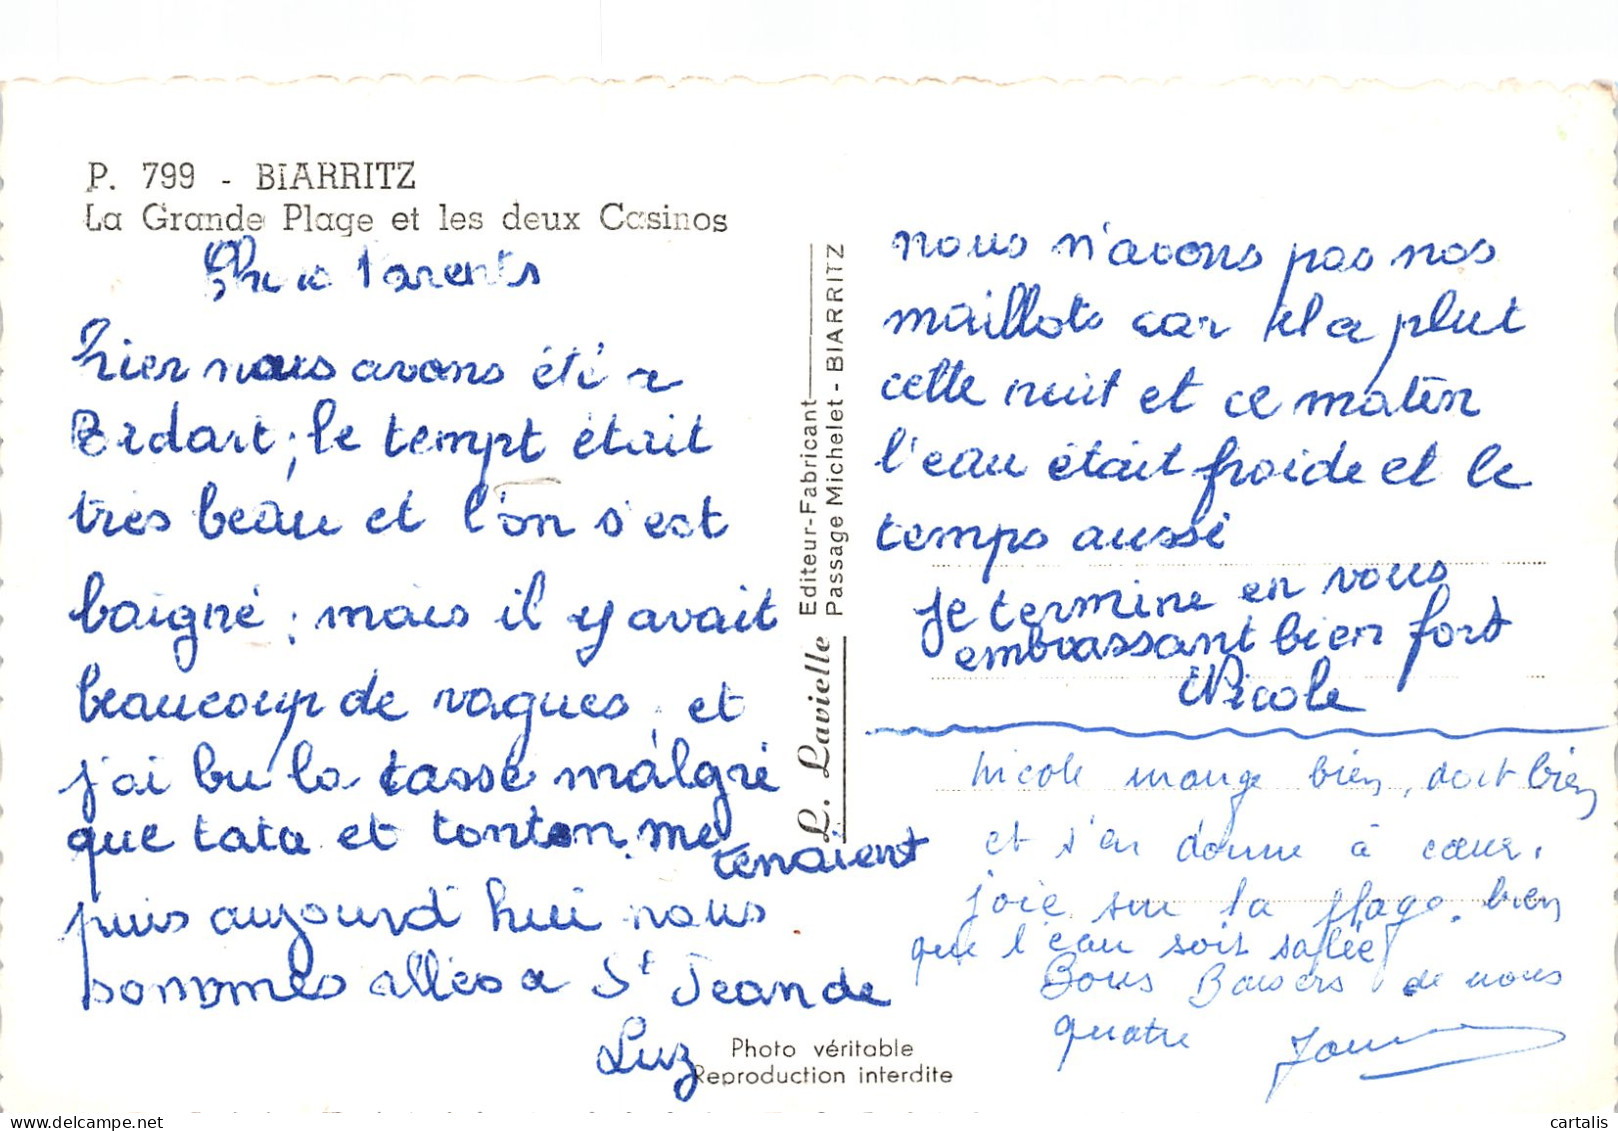 P. 799 - BIARRITZ
La Grande Plage et les deux Casinos
Chers Parents
hier nous avons été a
Bidart ; le tempt était
très beau et l'on s'est
baigné ; mais il y avait
beaucoup de vagues, et
j'ai bu la tasse malgré
que tata et tonton me
tenaient
puis aujourd'hui nous
sommes allés a St Jean de
Luz
Photo véritable
Reproduction interdite
L. Lavielle Editeur-Fabricant
Passage Michelet - BIARRITZ
nous n'avons pas nos
maillots car il a plut
cette nuit et ce matin
l'eau était froide et le
temps aussi
je termine en vous
embrassant bien fort
Nicole
Nicole mange bien, dort bien
et s'en donne à cœur,
joie sur la plage, bien
que l'eau soit salée
Bons Baisers de nous
quatre
cartalis